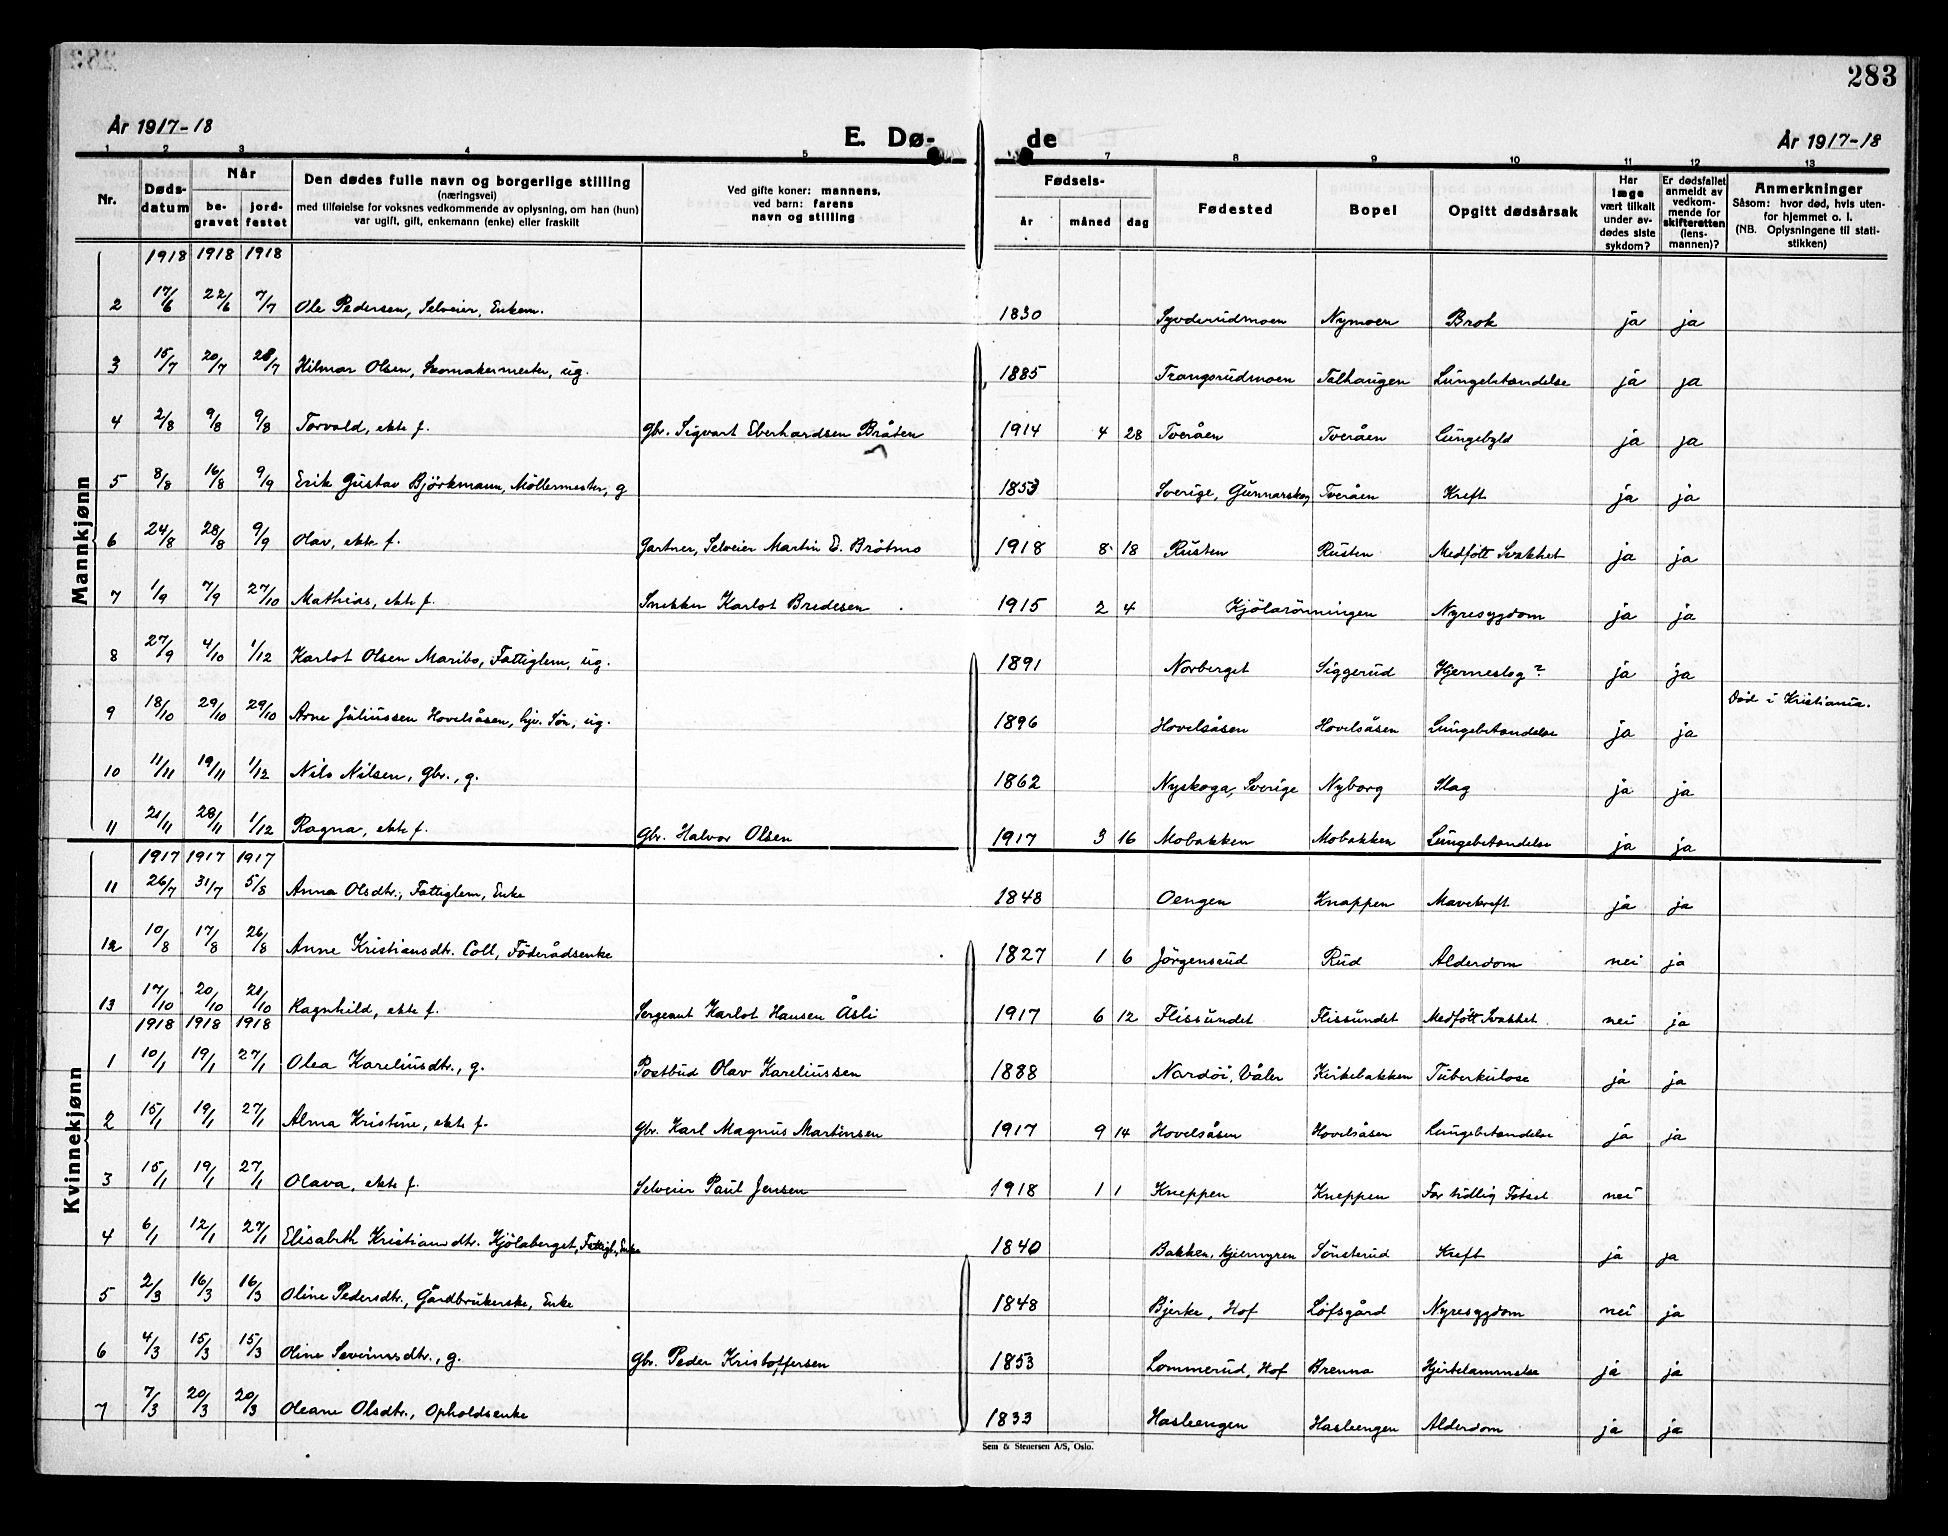 283
År 1917-18 E. Dø- de År 1917-18
1 2 3 4 5 7 8 9 10 11 12 13
Nr. Dødsdatum Når begravet jordfestet Den dødes fulle navn og borgerlige stilling (næringsvei) med tilføielse for voksnes vedkommende av oplysning, om han (hun) var ugift, gift, enkemann (enke) eller fraskilt Ved gifte koner: mannens, ved barn: farens navn og stilling Fødsels- år måned dag Fødested Bopel Opgitt dødsårsak Har læge vært tilkalt under avdødes siste sykdom? Er dødsfallet anmeldt av vedkommende for skifteretten (lensmannen)? Anmerkninger Såsom: hvor død, hvis utenfor hjemmet o. l. (NB. Oplysningene til statistikken)
Mankjønn
1918 1918 1918
2 17/6 22/6 7/7 Ole Pedersen, Selveier, Enkem. 1830 Syvderudmoen Nymoen Brok ja ja
3 15/7 20/7 28/7 Hilmar Olsen, Skomakermester, ug. 1885 Trangsrudmoen Talhaugen Lungebetændelse ja ja
4 2/8 9/8 9/8 Torvald, ekte f. Gbr. Sigvart Eberhardsen Bråten 1914 4 28 Tveråen Tveråen Lungebyld ja ja
5 8/8 16/8 9/9 Erik Gustav Björkmann, Møllermester, g 1853 Sverige, Gunnarskog, Tveråen Kreft ja ja
6 24/8 28/8 9/9 Olav, ekte f. Gartner, Selveier Martin E. Bråtmo 1918 8 18 Rusten Rusten Medfött Svakhet ja ja
7 1/9 7/9 27/10 Mathias, ekte f. Snekker Karlot Bredesen 1915 2 4 Kjölarönningen Nyresygdom ja ja
8 27/9 4/10 1/12 Karlot Olsen Maribo, Fattiglem, ug. 1891 Norberget Siggerud Hjerneslag? ja ja
9 18/10 29/10 29/10 Arne Juliussen Hovelsåsen, hjv. Søn, ug. 1896 Hovelsåsen Hovelsåsen Lungebetændelse ja ja Död i Kristiania.
10 11/11 19/11 1/12 Nils Nilsen, Gbr., g. 1862 Nyskoga, Sverige Nyborg Slag ja ja
11 21/11 28/11 1/12 Ragna, ekte f. Gbr. Halvor Olsen 1917 3 16 Mobakken Mobakken Lungebetændelse ja ja
Kvinnekjønn
1917 1917 1917
11 26/7 31/7 5/8 Anna Olsdtr., Fattiglem, Enke 1848 Oengen Knappen Mavekreft ja ja
12 10/8 17/8 26/8 Anne Kristiansdtr. Coll, Föderådsenke 1827 1 6 Jörgensrud Rud Alderdom nei ja
13 17/10 20/10 21/10 Ragnhild, ekte f. Sergeant Karlot Hansen Åsli 1917 6 12 Flissundet Flissundet Medfött Svakhet nei ja
1918 1918 1918
1 10/1 19/1 27/1 Olea Kareliusdtr., g. Postbud Olav Kareliussen 1888 Nordöi, Våler Kirkebakken Tuberkulose ja ja
2 15/1 19/1 27/1 Alma Kristine, ekte f. Gbr. Karl Magnus Martinsen 1917 9 14 Hovelsåsen Hovelsåsen Lungebetændelse ja ja
3 15/1 19/1 27/1 Olava, ekte f. Selveier Paul Jensen 1918 1 1 Kneppen Kneppen For tidlig Fötsel nei
4 6/1 12/1 27/1 Elisabeth Kristiansdtr. Kjölaberget, Fattigl., Enke 1840 Bakken, Kjernmyren Sönsterud Kreft ja ja
5 2/3 16/3 16/3 Oline Pedersdtr., Gårdbrukerske, Enke 1848 Bjerke, Hof Löfsgård Nyresygdom nei ja
6 4/3 15/3 15/3 Oline Severinsdtr., g. Gbr. Peder Kristoffersen 1853 Lommerud, Hof Brenna Hjertelammelse ja ja
7 7/3 20/3 20/3 Oleane Olsdtr., Opholdsenke 1833 Hasleengen Hasleengen Alderdom ja ja
Sem & Stenersen A/S, Oslo.